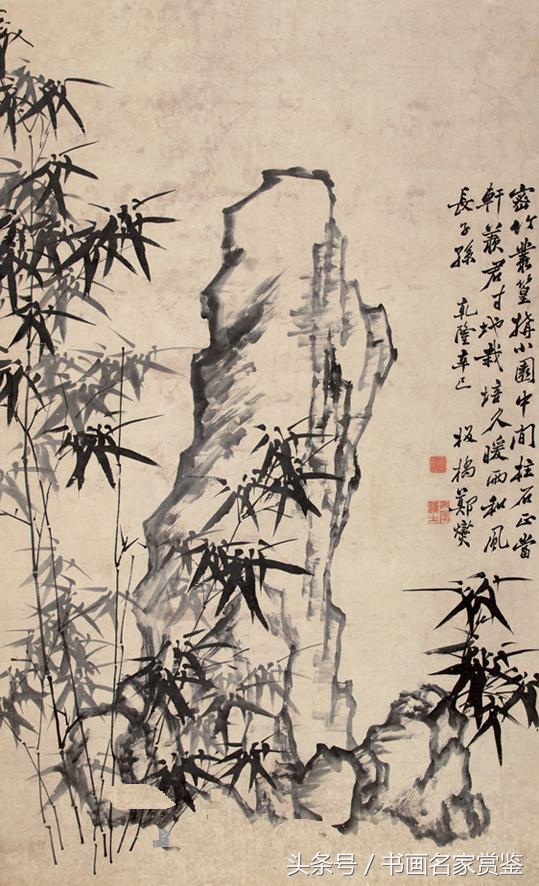 密竹叢篁搆小園中間柱石正當
軒羨君寸地栽培久暖雨和風
長子孫 乾隆辛巳 板橋鄭燮
头条号 / 书画名家赏鉴